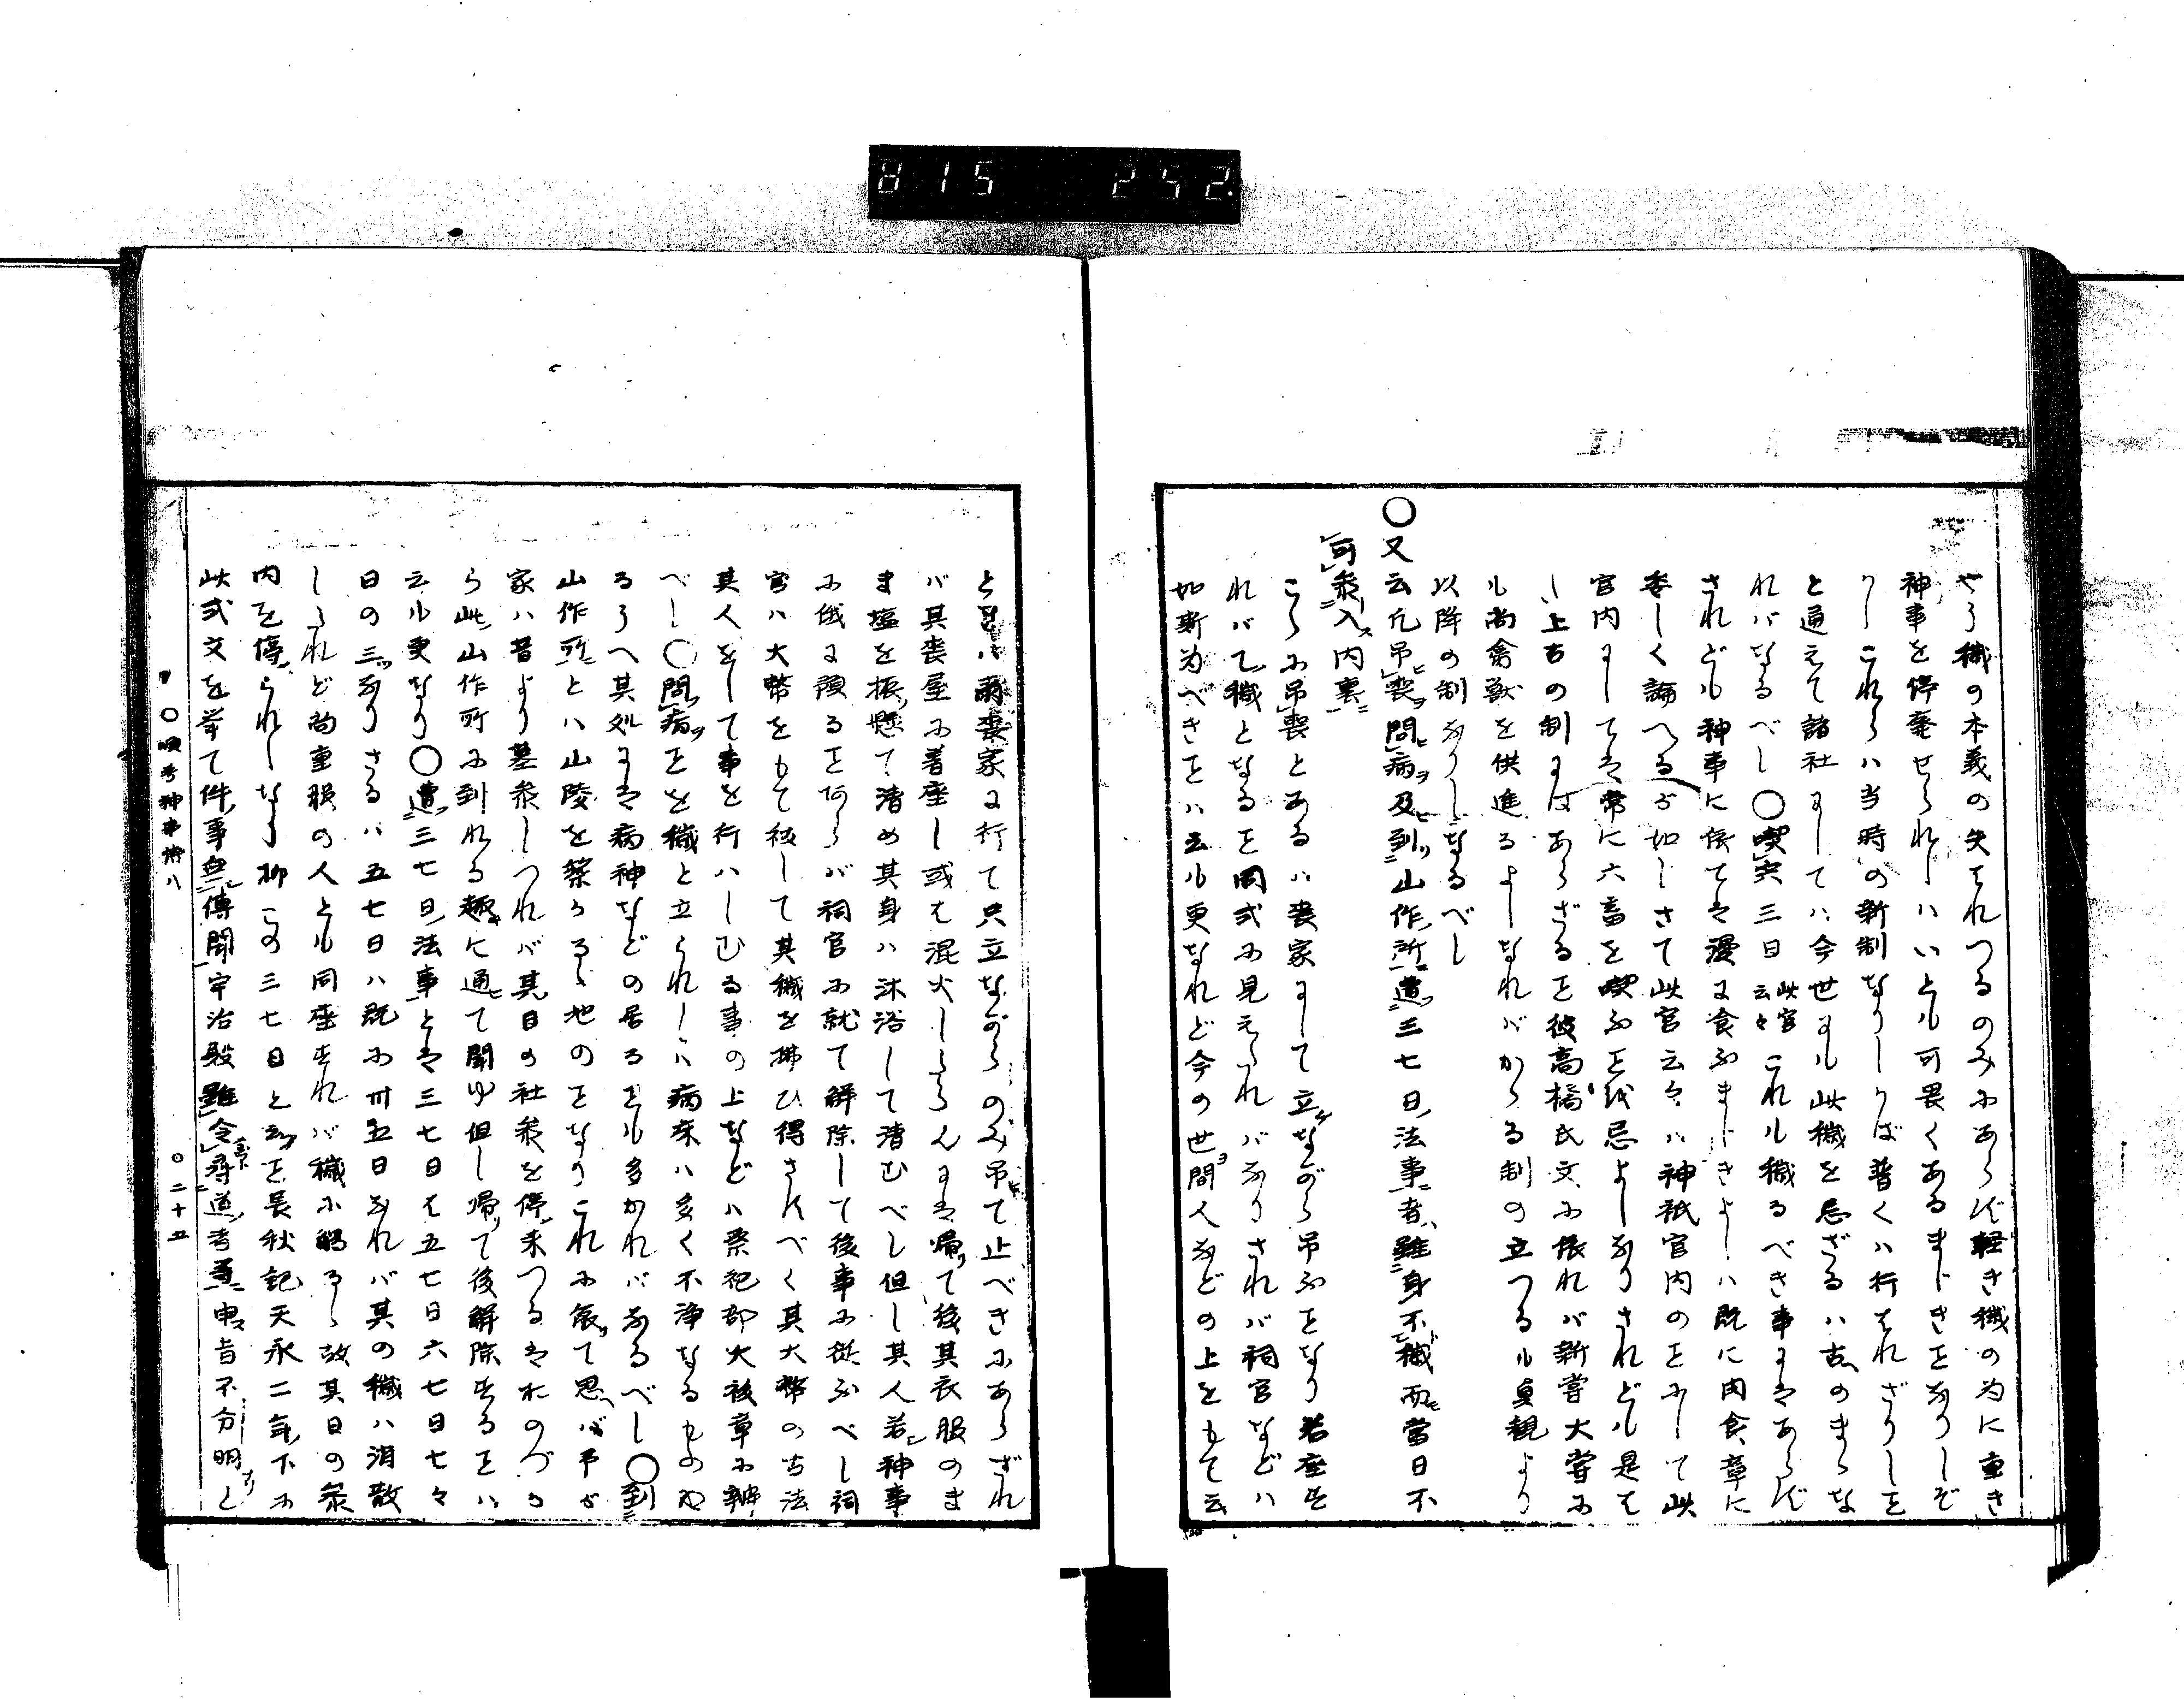 815 252
やう穢の本義の失はれつるのみにあらず軽き穢の為に重き
神事を停棄せられしハいとも可畏くあるまじきことなりしぞ
かしこれらハ当時の新制なりしかば普くハ行はれざりしこと
と通えて諸社にしてハ今世にも此穢を忌ざるハ古のまゝな
ればなるべし〇喫宍三日此官云々これも穢るべき事にはあらず
されども神事に依ては漫に食ふまじきよしハ既に肉食章に
委しく論へるが如しさて此官云々ハ神祇官内のことにして此
官内にしては常に六畜を喫ふことを忌よしなりされども是は
上古の制にはあらざることを彼高橋氏文に依れバ新嘗大嘗に
も尚禽獣を供進るよしなれバかゝる制の立つるも貞観より
以降の制なりしなるべし
〇又云凡吊喪問病及到山作所遭三七日法事者雖身不穢而当日不
可参入内裏
こゝに吊喪とあるハ喪家にして立ながら吊ふことなり若座せ
れバ乙穢となること同式に見えたれバなりされバ祠官などハ
如斯為べきことハ云も更なれど今の世間人などの上をもて云
ときハ喪家に行て只立ながらのみ吊て止べきにあらざれ
バ其喪屋に着座し或は混火したらんには帰て後其衣服のま
ま塩を振懸て清め其身ハ沐浴して清むべし但し其人若神事
に俄に預ることあらバ祠官に就て解除して後事に従ふべし祠
官ハ大幣をもて祓して其穢を拂ひ得さすべく其大幣の古法
其人をして事を行ハしむる事の上などハ祭祀部大祓章に辨
べし〇問病ことを穢と立られしハ病床ハ多く不浄なるものな
るうへ其処には病神などの居ることも多かれバなるべし〇到
山作所とハ山陵を築かるゝ地のことなりこれに依て思へバ予が
家ハ昔より墓参しつれバ其日の社参を停来つるはおのづか
ら此山作所に到れる趣に通て聞ゆ但し帰て後解除することハ
云も更なり〇遭三七日法事とは三七日は五七日六七日七々
日の三なりさるハ五七日ハ既に卅五日なれバ其の穢ハ消散
したれど尚重服の人とも同座すれバ穢に觸るゝ故其日の参
内を停られしなり抑この三七日と云ことを長秋記天永二年下に
此式文を挙て件事無傳聞宇治殿雖令尋道考等申旨不分明と
〇順考神事傳八
〇二十五